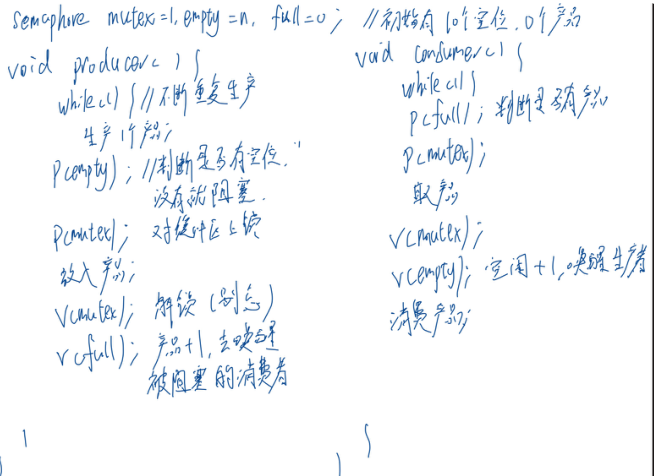 semaphore mutex=1, empty=n, full=0; //初始有10个空位,0个产品
void producer() {
while(1) { //不断重复生产
生产1个产品;
P(empty); //判断是否有空位,
没有就阻塞.
P(mutex); 对缓冲区上锁
放入产品;
V(mutex); 解锁(别忘)
V(full); 产品+1,去唤醒
被阻塞的消费者
}
}
void consumer() {
while(1) {
P(full); 判断是否有产品
P(mutex);
取产品
V(mutex);
V(empty); 空闲+1,唤醒生产者
消费产品;
}
}